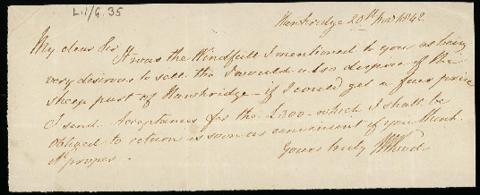 L.1/G.35
Hawkridge 20th 1842
My dear Sir It was the Windfall I mentioned to you as being
very desirous to sell tho I would also dispose of the
sheep part of Hawkridge - if I could get a fair price
I send Acceptance for the £300 - which I shall be
obliged to return as soon as convenient if you think
it proper.
Yours truly